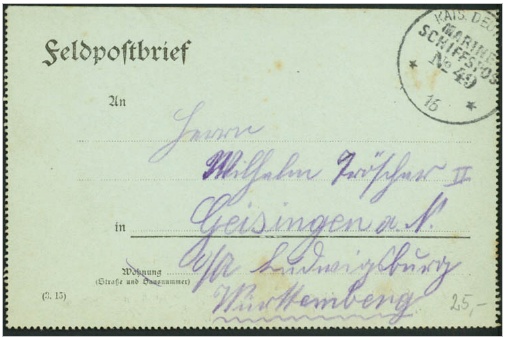 Feldpostbrief
KAIS. DEU
MARINE
SCHIFFSPOS
No 49
* *
15
An
Herrn
Wilhelm Tröscher II
in
Geisingen a. N.
Wohnung
(Straße und Hausnummer)
o/A Ludwigsburg
(3. 15)
Württemberg
25,-